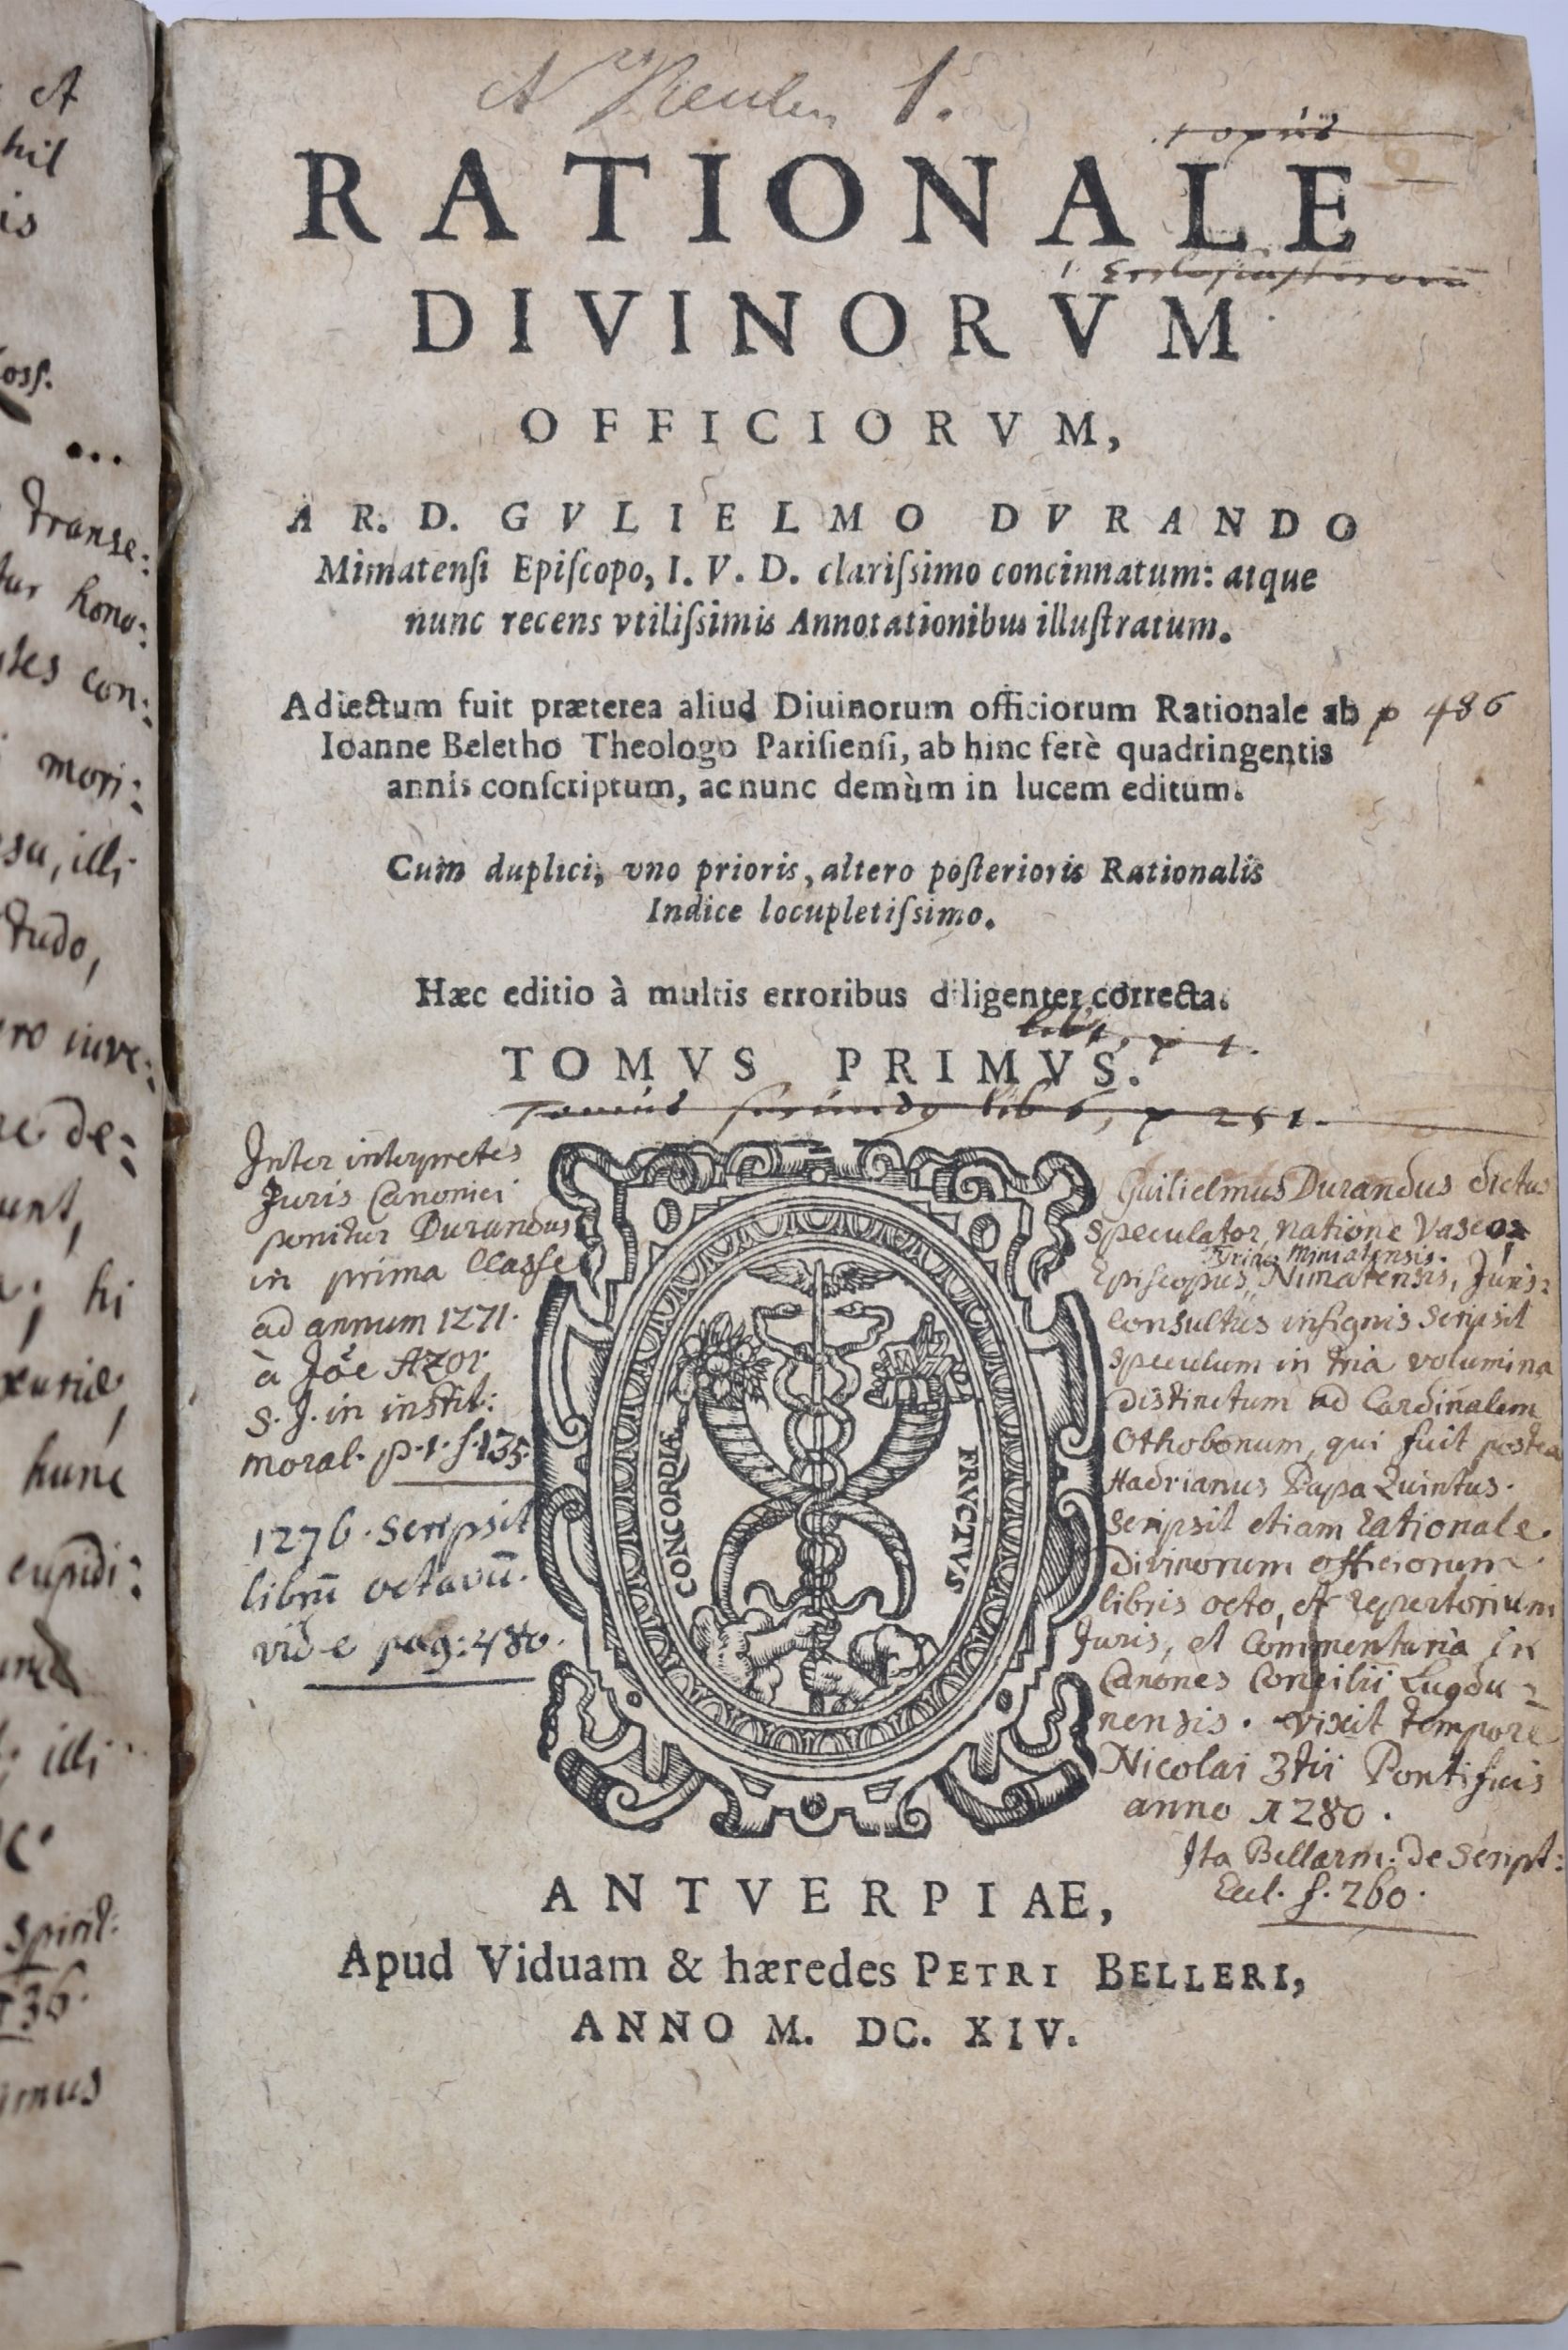 et
hil
is
oss.
transe:
tur hono:
ntes con:
mori:
su, illi
tudo,
ro iuve:
re de:
unt,
hi
hunc
cupidi:
illi
spirit:
136.
imus
A 1.
RATIONALE
DIVINORVM
OFFICIORVM,
A R. D. GVLIELMO DVRANDO
Mimatenſi Epiſcopo, I. V. D. clariſsimo concinnatum: atque
nunc recens vtiliſsimis Annotationibus illuſtratum.
Adiectum fuit præterea aliud Diuinorum officiorum Rationale ab p 486
Ioanne Beletho Theologo Pariſienſi, ab hinc ferè quadringentis
annis conſcriptum, ac nunc demùm in lucem editum.
Cum duplici, vno prioris, altero poſterioris Rationalis
Indice locupletiſsimo.
Hæc editio à multis erroribus diligenter correcta.
lib 1, p 1.
TOMVS PRIMVS.
Tomus secundus lib 6, p 251.
Inter interpretes
Juris Canonici
ponitur Durandus
in prima Classe
ad annum 1271.
à Joe Azor
S. J. in instit:
moral. p. 1. f. 135.
1276. scripsit
librū octavū.
vide pag: 480.
CONCORDIÆ
FRVCTVS
Guilielmus Durandus dictus
Speculator, natione Vasco,
Mimatensis.
Episcopus, Nimatensis, Juris:
consultus insignis scripsit
speculum in tria volumina
distinctum ad Cardinalem
Othobonum, qui fuit postea
Hadrianus Papa Quintus.
scripsit etiam rationale
divinorum officiorum
libris octo, et repertorium
Juris, et Commentaria in
Canones Concilii Lugdu-
nensis. vixit tempore
Nicolai 3tii Pontificis
anno 1280.
Ita Bellarm: de script:
Eccl. f. 260.
ANTVERPIAE,
Apud Viduam & hæredes PETRI BELLERI,
ANNO M. DC. XIV.